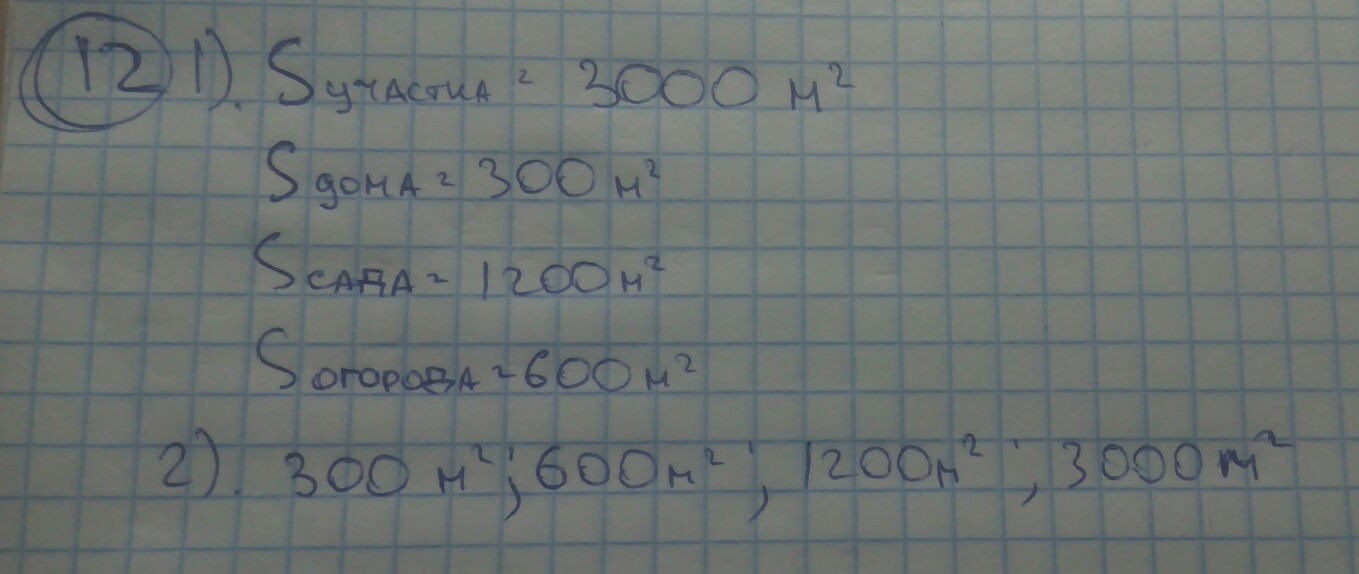 12 1). Sучастка = 3000 м²
Sдома = 300 м²
Sсада = 1200 м²
Sогорода = 600 м²
2). 300 м²; 600 м²; 1200 м²; 3000 м²